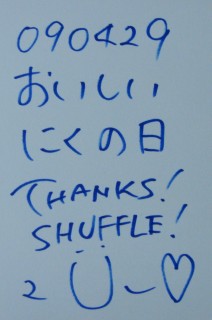 090429
おいしい
にくの日
THANKS!
SHUFFLE!